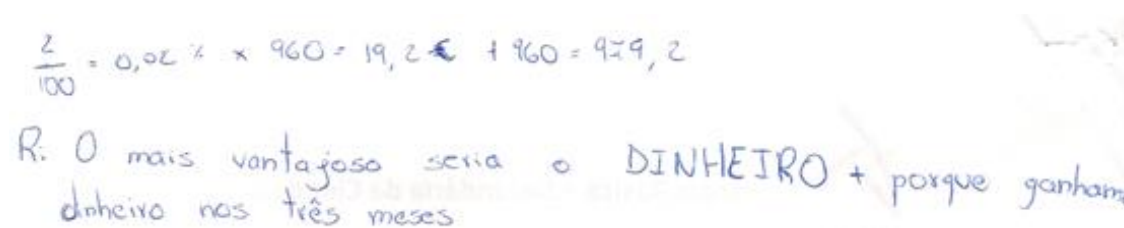 2/100 = 0,02 % × 960 = 19,2 € + 960 = 979, 2
R: O mais vantajoso seria o DINHEIRO + porque ganham
dinheiro nos três meses